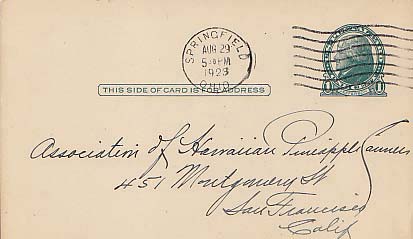 SPRINGFIELD
AUG 29
5 PM
1928
OHIO
THIS SIDE OF CARD IS FOR ADDRESS
Association of Hawaiian Pineapple Canners
451 Montgomery St
San Francisco
Calif